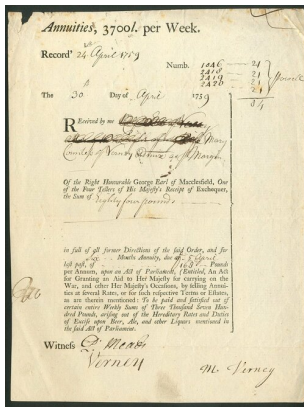 Annuities, 3700l. per Week.
Record' 24 April 1759
Numb. 10A6 — 21
2A18 — 21
2A19 — 21
2A20 — 21
84
The 30 Day of April 1759
REceived by me
Mary
Countess of
Of the Right Honourable George Earl of Macclesfield, One
of the Four Tellers of His Majesty's Receipt of Exchequer,
the Sum of Eighty four pounds
in full of all former Directions of the said Order, and for
Months Annuity, due at 5 April
last past, of 168 Pounds
per Annum, upon an Act of Parliament, Entitled, An Act
for Granting an Aid to Her Majesty for carrying on the
War, and other Her Majesty's Occasions, by selling Annui-
ties at several Rates, or for such respective Terms or Estates,
as are therein mentioned: To be paid and satisfied out of
certain entire Weekly Sums of Three Thousand Seven Hund-
red Pounds, arising out of the Hereditary Rates and Duties
of Excise upon Beer, Ale, and other Liquors mentioned in
the said Act of Parliament.
Witness
Verney
M. Verney